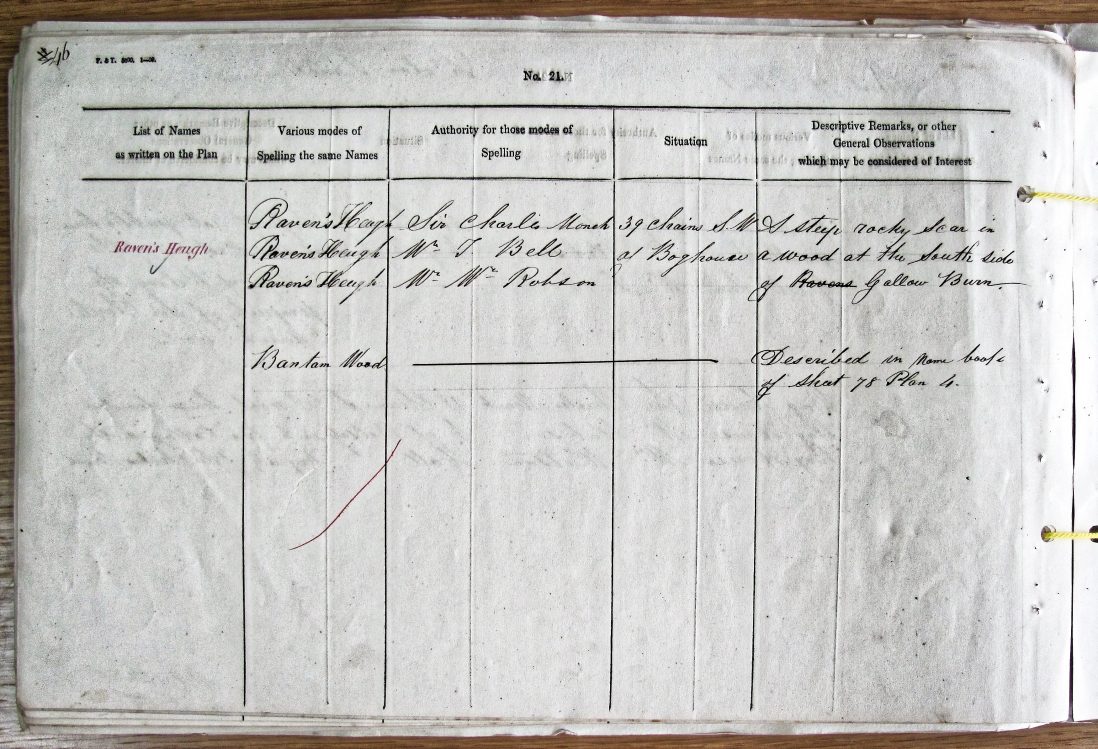 46
F. & T. 5000. 1—59.
No. 21.
List of Names
as written on the Plan
Various modes of
Spelling the same Names
Authority for those modes of
Spelling
Situation
Descriptive Remarks, or other
General Observations
which may be considered of Interest
Raven's Heugh
Raven's Heugh
Raven's Heugh
Raven's Heugh
Sir Charles Monck
Mr. T. Bell
Mr. Wm. Robson
39 chains S.W
of Boghouse
A steep rocky scar in
a wood at the South side
of Ravens Gallow Burn.
Bantam Wood
Described in Name book
of Sheet 78 Plan 4.